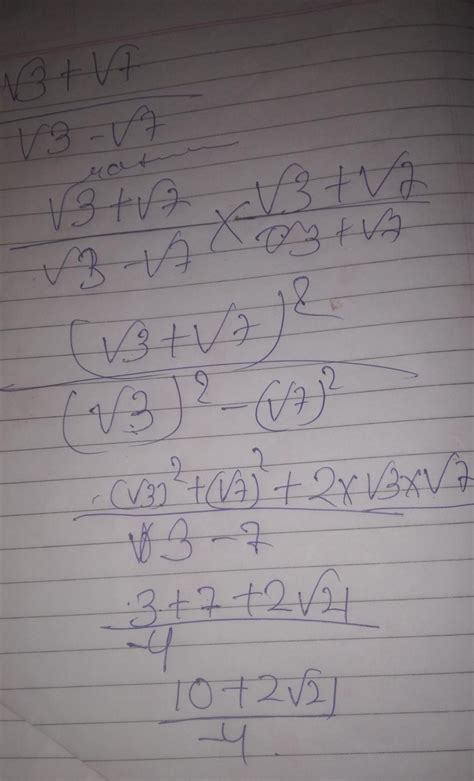 √3 + √7
√3 - √7
√3 + √7 × √3 + √7
√3 - √7 √3 + √7
(√3 + √7)²
(√3)² - (√7)²
(√3)² + (√7)² + 2×√3×√7
3 - 7
3 + 7 + 2√21
-4
10 + 2√21
-4